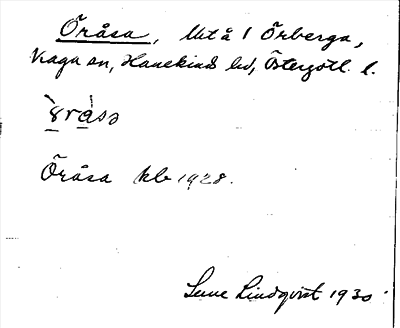 Öråsa, Utå 1 Örberga,
Kaga sn, Hanekinds hd, Östergötl. l.
`ɤ̱rà̱sə
Öråsa kb 1928.
Sune Lindqvist 1930